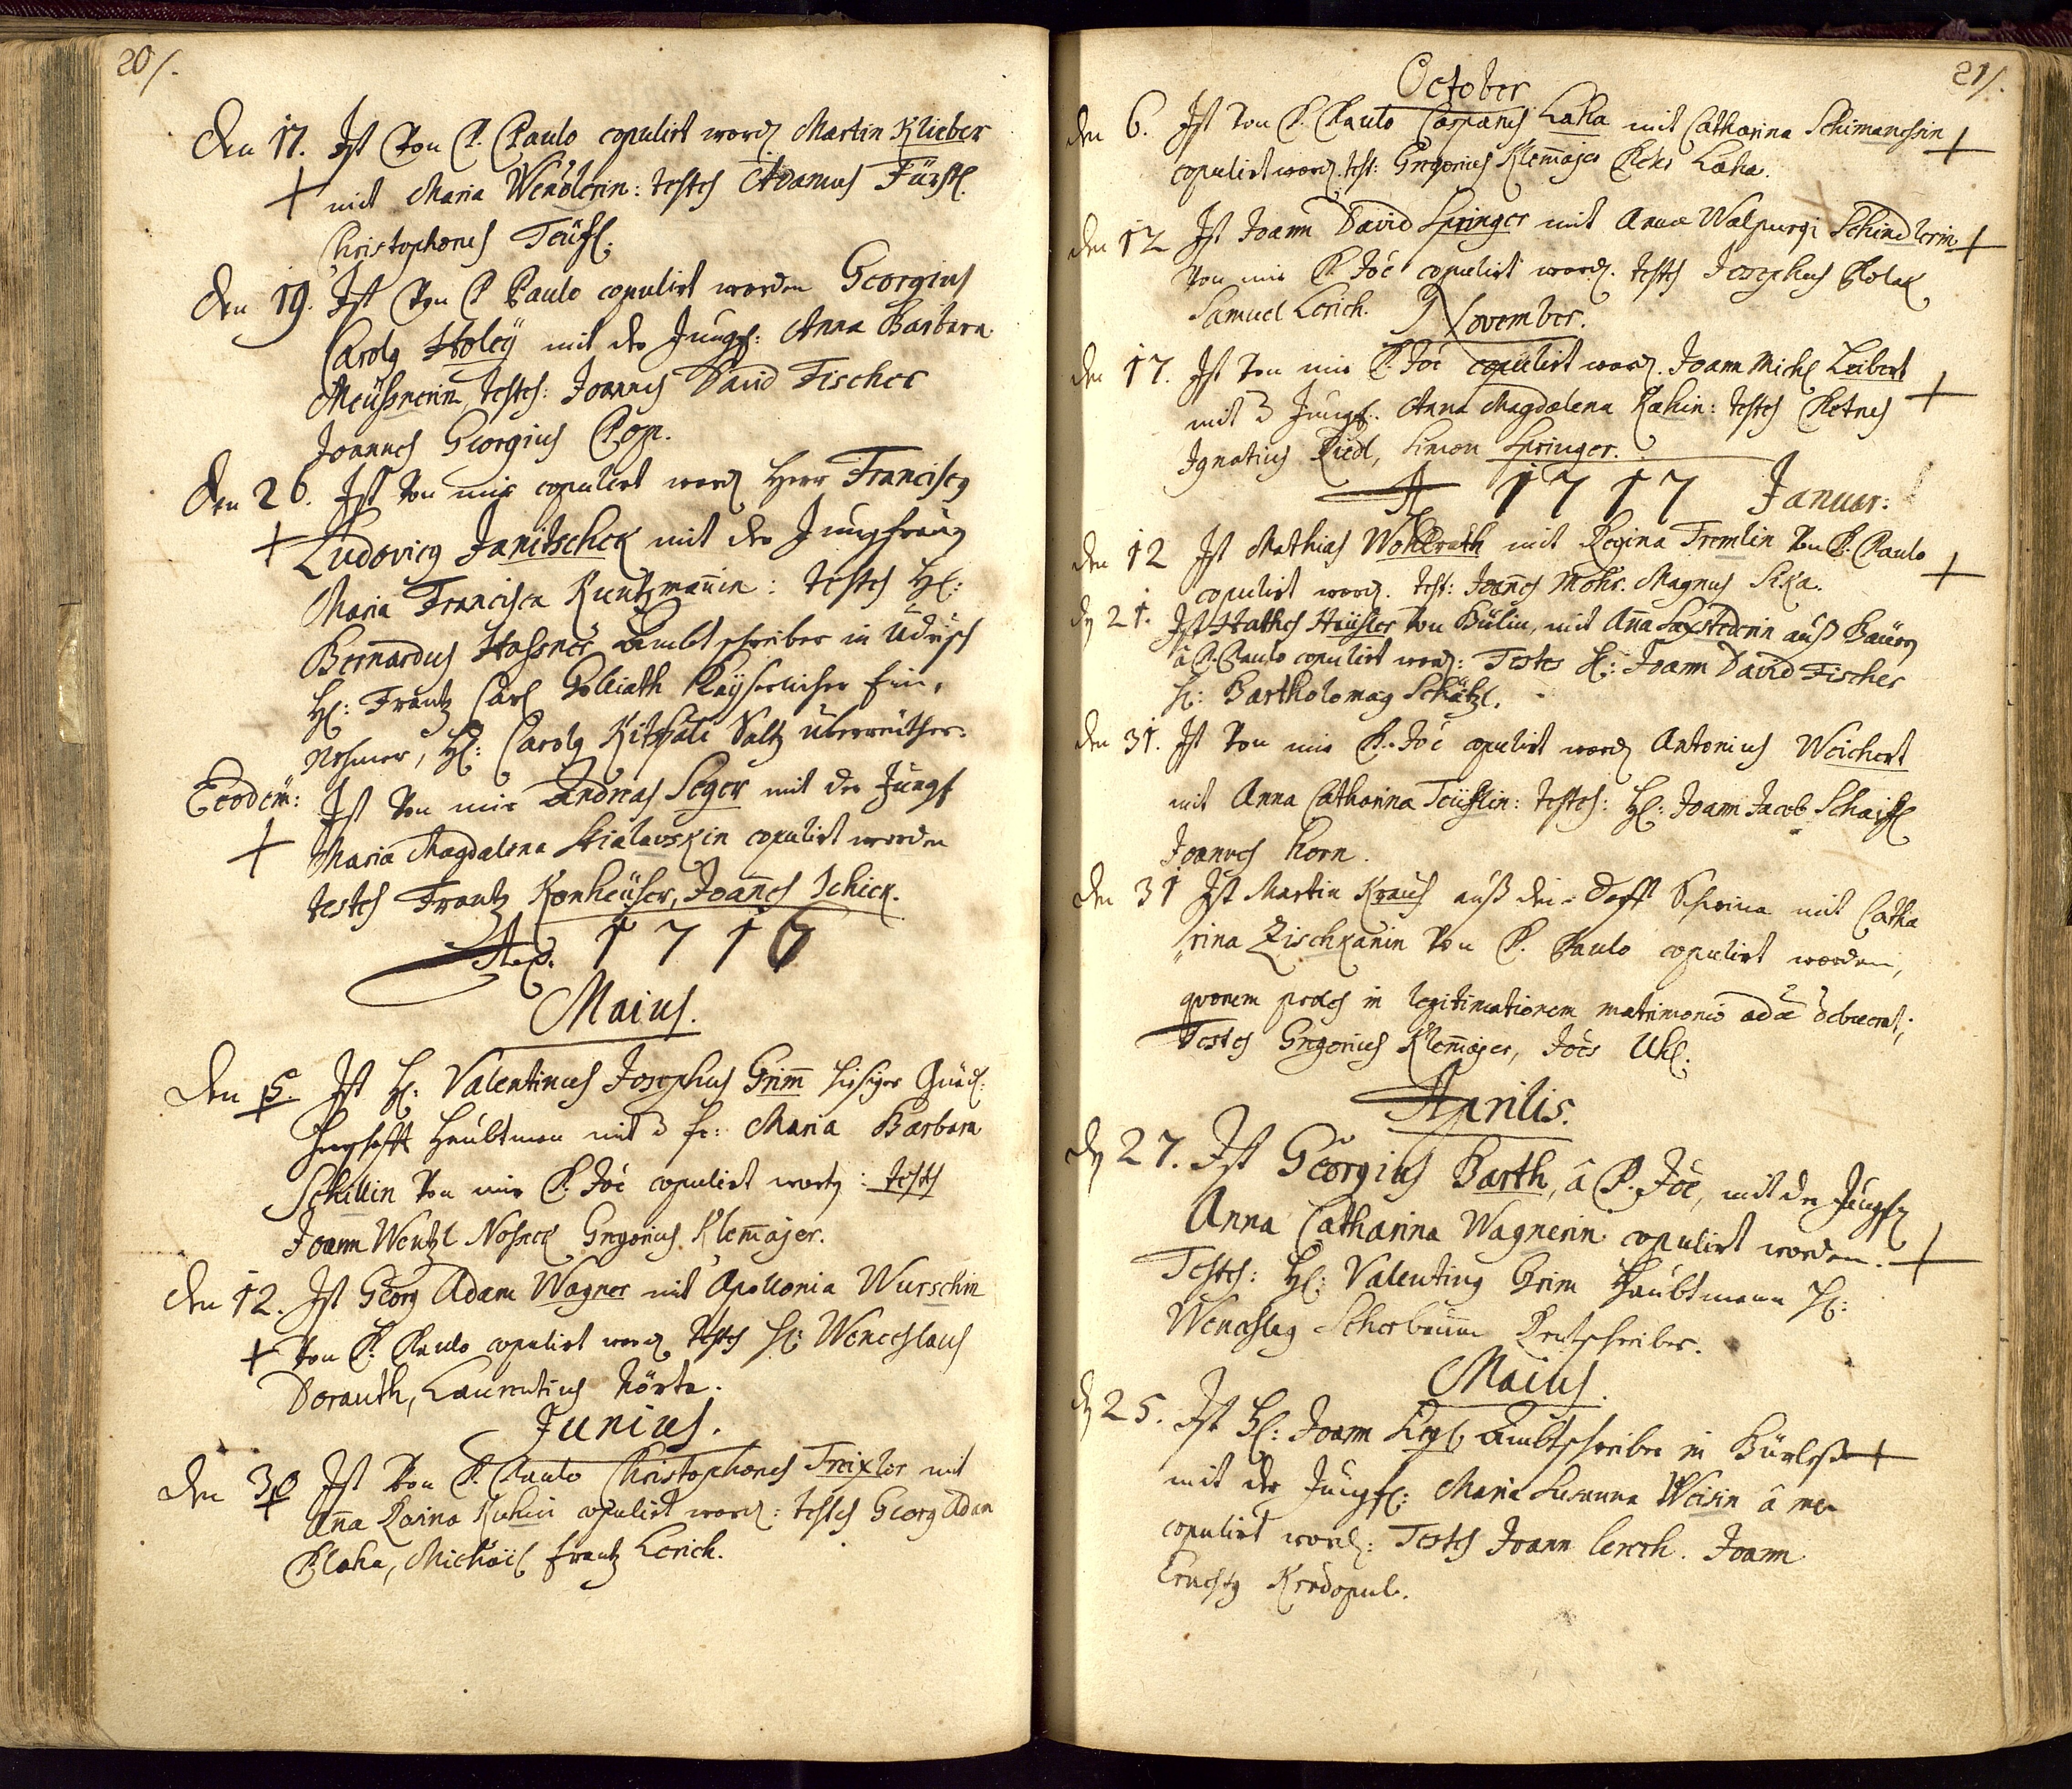 20/.
Den 17. Ist Von P. Paulo copulirt word. Martin Klieber
+ mit Maria Wendlerin: testes Adamus Fürst.
Christophorus Teüfl.
Den 19. Ist Von P Paulo copulirt worden Georgius
Carolg Holeÿ mit der Jungf: Anna Barbara
Meüßnerin, testes: Joannes David Fischer
Joannes Georgius Pop.
Den 26. Ist Von mir copulirt word Herr Franciscg
+ Ludovicg Janitschek mit der Jungfraug
Maria Francisca Kuntzmanin: testes H:
Bernardus Hafsner Ambtschreiber in Udritsch
H: Frantz Carl Golliath Kaÿserlicher Ein,
nehmer, H: Carolg Saltz überreüther.
Eodem: Ist Von mir Andreas Seger mit der Jungf
+ Maria Magdalena Skialauskin copulirt worden
testes Frantz Konheüser, Joanes Schick.
Ao. 1716
Maius.
Den 5. Ist H: Valentinus Josephus Grim hiesiger Gnäd:
Herschafft Haubtman mit d fr: Maria Barbara
Schillin Von mir P. Joe copulirt wordg: testes
Joann Wentzl Gregorius Klemajer.
Den 12. Ist Georg Adam Wagner mit Apollonia Wurschin
+ Von P. Paulo copulirt word testes H: Wenceslaus
Dorauth, Laurentius Körte.
Junius.
Den 30 Ist Von P. Paulo Christophorus Traixler mit
Ana Rosina Kuhin copulirt word: testes Georg Adam
Blaha, Michäel frantz Lerich.
21/.
October
den 6. Ist Von P. Paulo Casparus Laha mit Catharina Schimanchin +
copulirt word. test: Gregorius Klemajer Peter Laha.
den 12 Ist Joann David Springer mit Anna Walpurgi Schindlerin +
Von mir P. Joe copulirt word. testes Josephus Polak
Samuel Lerich. November.
den 17. Ist Von mir P. Joe copulirt word. Joann Michl Leibert
mit d Jungf. Anna Magdalena Kahin: testes Petrus +
Ignatius Riedl, Simon Springer.
A 1717 Januar:
den 12 Ist Mathias Wohlrath mit Regina Fremlin Von P. Paulo +
copulirt word. test: Joanes Mohr. Magnus Sika.
dg 21. Ist Mathes Heüsler Von Bülin, mit Ana auß
â P. Paulo copulirt word: Testes H: Joann David Fischer
H: Bartholomag Schätzl.
den 31. Ist Von mir P. Joe copulirt word Antonius Weichert
mit Anna Catharina Teüflin: testes: H: Joann Jacob
Joannes Korn.
den 31 Ist Martin Kraus auß den Dorff mit Catha
rina Zischkanin Von P. Paulo copulirt worden,
quorum proles in legitimationem matrimonio
Testes Gregorius Klemajer, Joes Uhl.
Aprilis.
dg 27. Ist Georgius Barth, â P. Joe, mit der Jungf
Anna Catharina Wagnerin copulirt worden. +
Testes: H: Valenting Grim Haubtmann H:
Wenceslag Scherbaum Rentschreiber.
Maius.
dg 25. Ist H: Joann Ambtschreiber in +
mit der Jungf: Maria Susanna Weisin â me
copulirt word: Testes Joann lerch. Joann
Ernestg